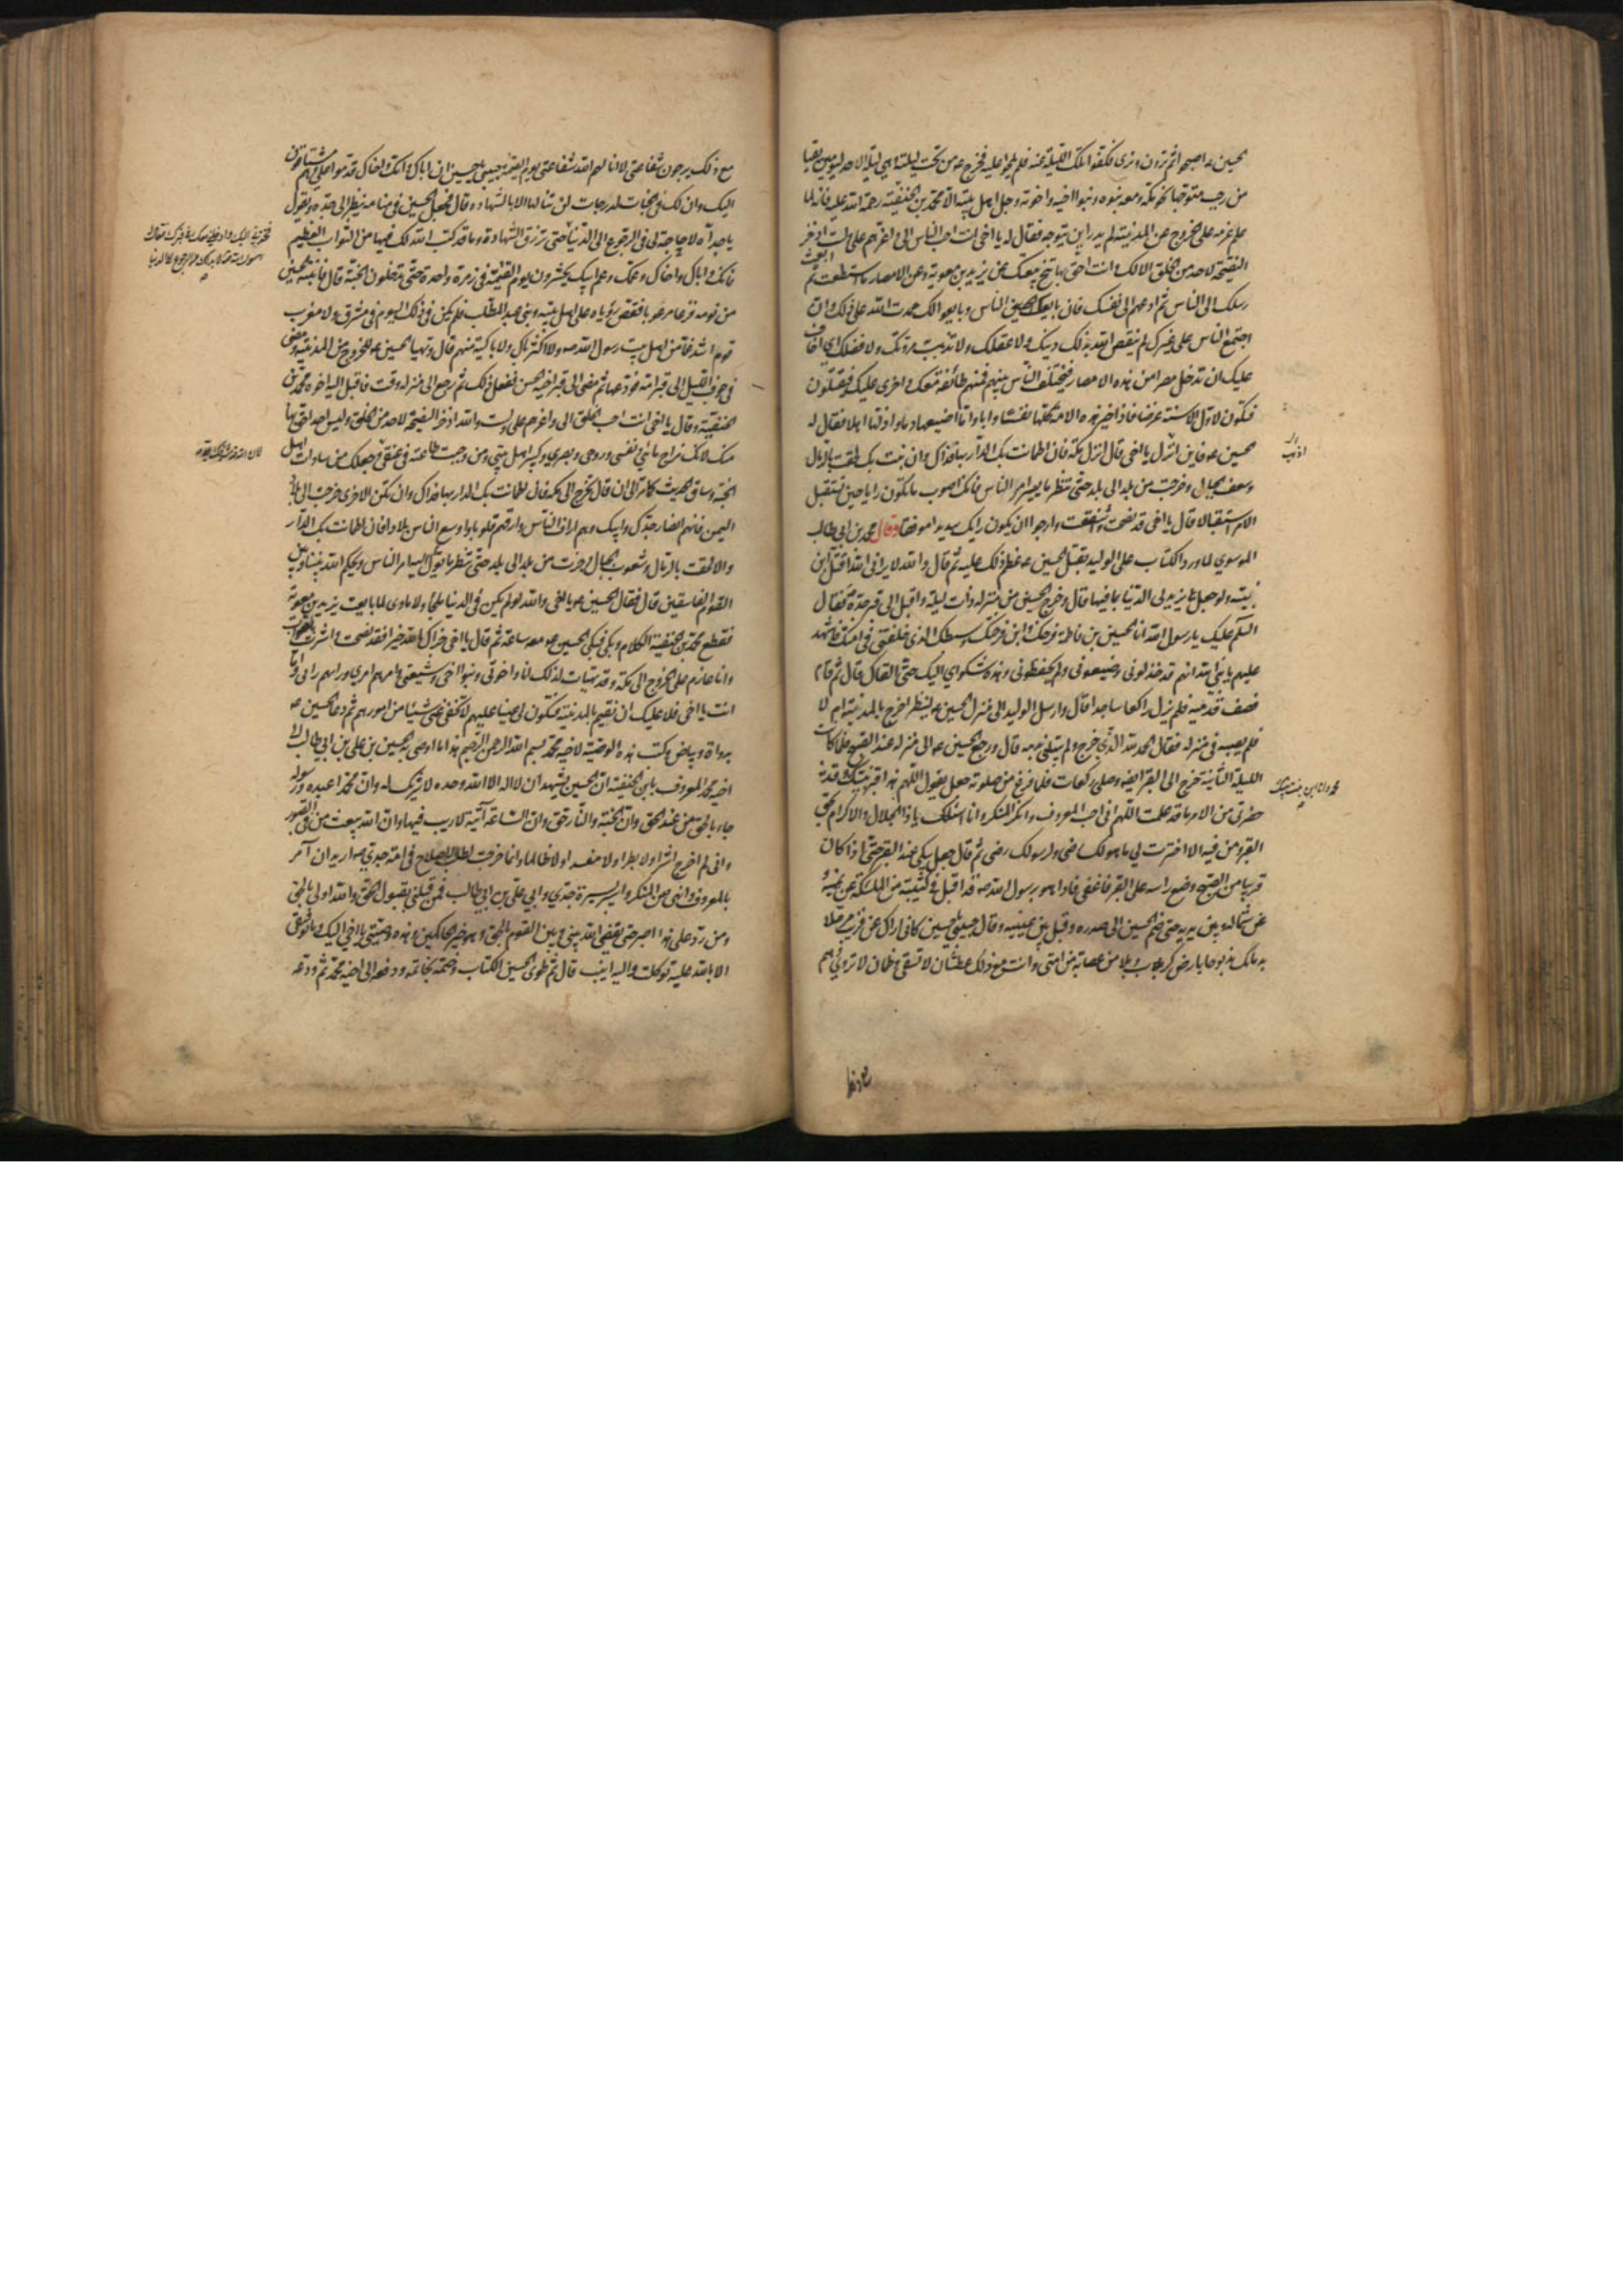 الحسين ع اصبحوا ثم ترون ونرى فكفوا تلك الليلة عنه فلم يلحوا عليه فخرج ع من تحت ليلته وهي ليلة الاحد ليومين بقيا
من رجب متوجها نحو مكة ومعه بنوه وبنوا اخيه واخوته وجل اهل بيته الا محمد بن الحنفية رحمة الله عليه فانه لما
علم عزمه على الخروج عن المدينة لم يدر اين يتوجه فقال له يا اخي انت احب الناس الي واعزهم علي ولست ادخر
النصيحة لاحد من الخلق الا لك وانت احق بها تنح ببيعتك عن يزيد بن معوية وعن الامصار ما استطعت ثم ابعث
رسلك الى الناس ثم ادعهم الى نفسك فان بايعك الناس وبايعوا لك حمدت الله على ذلك وان
اجتمع الناس على غيرك لم ينقص الله بذلك دينك ولا عقلك ولا تذهب به مروتك ولا فضلك اني اخاف
عليك ان تدخل مصرا من هذه الامصار فيختلف الناس بينهم فمنهم طائفة معك واخرى عليك فيقتتلون
فتكون لاول الاسنة غرضا فاذا خير هذه الامة كلها نفسا وابا واما اضيعها دما واذلها اهلا فقال له
الحسين ع فاين انزل يا اخي قال انزل مكة فان اطمانت بك الدار بها فذاك وان نبت بك لحقت بالرمال
وشعف الجبال وخرجت من بلد الى بلد حتى تنظر ما يصير امر الناس فانك اصوب ما تكون رايا حين تستقبل
الامر استقبالا قال يا اخي قد نصحت واشفقت وارجوا ان يكون رايك سديدا موفقا وقال محمد بن ابي طالب
الموسوي لما ورد الكتاب على الوليد بقتل الحسين ع عظم ذلك عليه ثم قال والله لا يراني الله اقتل ابن
نبيه ولو جعل لي يزيد لي الدنيا بما فيها قال وخرج الحسين من منزله ذات ليلة واقبل الى قبر جده فقال
السلم عليك يا رسول الله انا الحسين بن فاطمة فرخك وابن فرختك وسبطك الذي خلفتني في امتك فاشهد
عليهم يا نبي الله انهم قد خذلوني وضيعوني ولم يحفظوني وهذه شكواي اليك حتى القاك قال ثم قام
فصف قدميه فلم يزل راكعا ساجدا قال وارسل الوليد الى منزل الحسين ع لينظر اخرج من المدينة ام لا
فلم يصبه في منزله فقال الحمد لله الذي خرج ولم يبتلني بدمه قال ورجع الحسين ع الى منزله عند الصبح فلما كانت
الليلة الثانية خرج الى القبر ايضا وصلى ركعات فلما فرغ من صلوته جعل يقول اللهم هذا قبر نبيك وقد
حضرني من الامر ما قد علمت اللهم اني احب المعروف وانكر المنكر وانا اسئلك يا ذا الجلال والاكرام بحق
القبر ومن فيه الا اخترت لي ما هو لك رضى ولرسولك رضى ثم قال جعل يبكي عند القبر حتى اذا كان
قريبا من الصبح وضع راسه على القبر فاغفى فاذا هو برسول الله ص قد اقبل في كتيبة من الملئكة عن يمينه و
عن شماله وبين يديه حتى ضم الحسين الى صدره وقبل بين عينيه وقال حبيبي يا حسين كاني اراك عن قريب مرملا
بدمائك مذبوحا بارض كرب وبلا من عصابة من امتي وانت مع ذلك عطشان لا تسقى وظمان لا تروى وهم
محمد وانا ابن بنت نبيك
مع ذلك يرجون شفاعتي لا انالهم الله شفاعتي يوم القيمة حبيبي يا حسين ان اباك وامك واخاك قدموا علي وهم مشتاقون
اليك وان لك في الجنات لدرجات لن تنالها الا بالشهادة قال فجعل الحسين في منامه ينظر الى جده ويقول
يا جداه لا حاجة لي في الرجوع الى الدنيا حتى ترزق الشهادة وما قد كتب الله لك فيها من الثواب العظيم
فانك واباك واخاك وعمك وعم ابيك يحشرون يوم القيمة في زمرة واحدة حتى تدخلون الجنة قال فانتبه الحسين
من نومه فزعا مرعوبا فقص رؤياه على اهل بيته وبني عبد المطلب فلم يكن في ذلك اليوم في مشرق ولا مغرب
قوم اشد غما من اهل بيت رسول الله ص ولا اكثر باك ولا باكية منهم قال وتهيأ الحسين ع للخروج من المدينة ومضى
في جوف الليل الى قبر امه فودعها ثم مضى الى قبر اخيه الحسن ففعل ذلك ثم رجع الى منزله وقت فاقبل اليه اخوه محمد بن
الحنفية وقال يا اخي انت احب الخلق الي واعزهم علي ولست والله ادخر النصيحة لاحد من الخلق وليس احد احق بها
منك لانك مزاج مائي ونفسي وروحي وبصري وكبير اهل بيتي ومن وجبت طاعته في عنقي وجعلك من سادات اهل
الجنة وساق الحديث كما مر الى ان قال تخرج الى مكة فان اطمانت بك الدار بها فذاك وان تكن الاخرى خرجت الى بلاد
اليمن فانهم انصار جدك وابيك وهم اراف الناس وارقهم قلوبا واوسع الناس بلادا فان اطمانت بك الدار
والا لحقت بالرمال وشعوب الجبال وجزت من بلد الى بلد حتى تنظر ما يؤل اليه امر الناس ويحكم الله بيننا وبين
القوم الفاسقين قال فقال الحسين ع يا اخي والله لو لم يكن في الدنيا ملجأ ولا ماوى لما بايعت يزيد بن معوية
فقطع محمد بن الحنفية الكلام وبكى فبكى الحسين ع معه ساعة ثم قال يا اخي جزاك الله خيرا فقد نصحت واشرت بالصواب
وانا عازم على الخروج الى مكة وقد تهيات لذلك انا واخوتي وبنوا اخي وشيعتي وامرهم امري ورايهم رايي واما
انت يا اخي فلا عليك ان تقيم بالمدينة فتكون لي عينا عليهم لا تخفي عني شيئا من امورهم ثم دعا الحسين ع
بدواة وبياض وكتب هذه الوصية لاخيه محمد بسم الله الرحمن الرحيم هذا ما اوصى به الحسين بن علي بن ابي طالب الى
اخيه محمد المعروف بابن الحنفية ان الحسين يشهد ان لا اله الا الله وحده لا شريك له وان محمدا عبده ورسوله
جاء بالحق من عند الحق وان الجنة والنار حق وان الساعة آتية لا ريب فيها وان الله يبعث من في القبور
واني لم اخرج اشرا ولا بطرا ولا مفسدا ولا ظالما وانما خرجت لطلب الاصلاح في امة جدي ص اريد ان آمر
بالمعروف وانهى عن المنكر واسير بسيرة جدي وابي علي بن ابي طالب فمن قبلني بقبول الحق والله اولى بالحق
ومن رد علي هذا اصبر حتى يقضي الله بيني وبين القوم بالحق وهو خير الحاكمين وهذه وصيتي يا اخي اليك وما توفيقي
الا بالله عليه توكلت واليه انيب قال ثم طوى الحسين الكتاب وختمه بخاتمه ودفعه الى اخيه محمد ثم ودعه